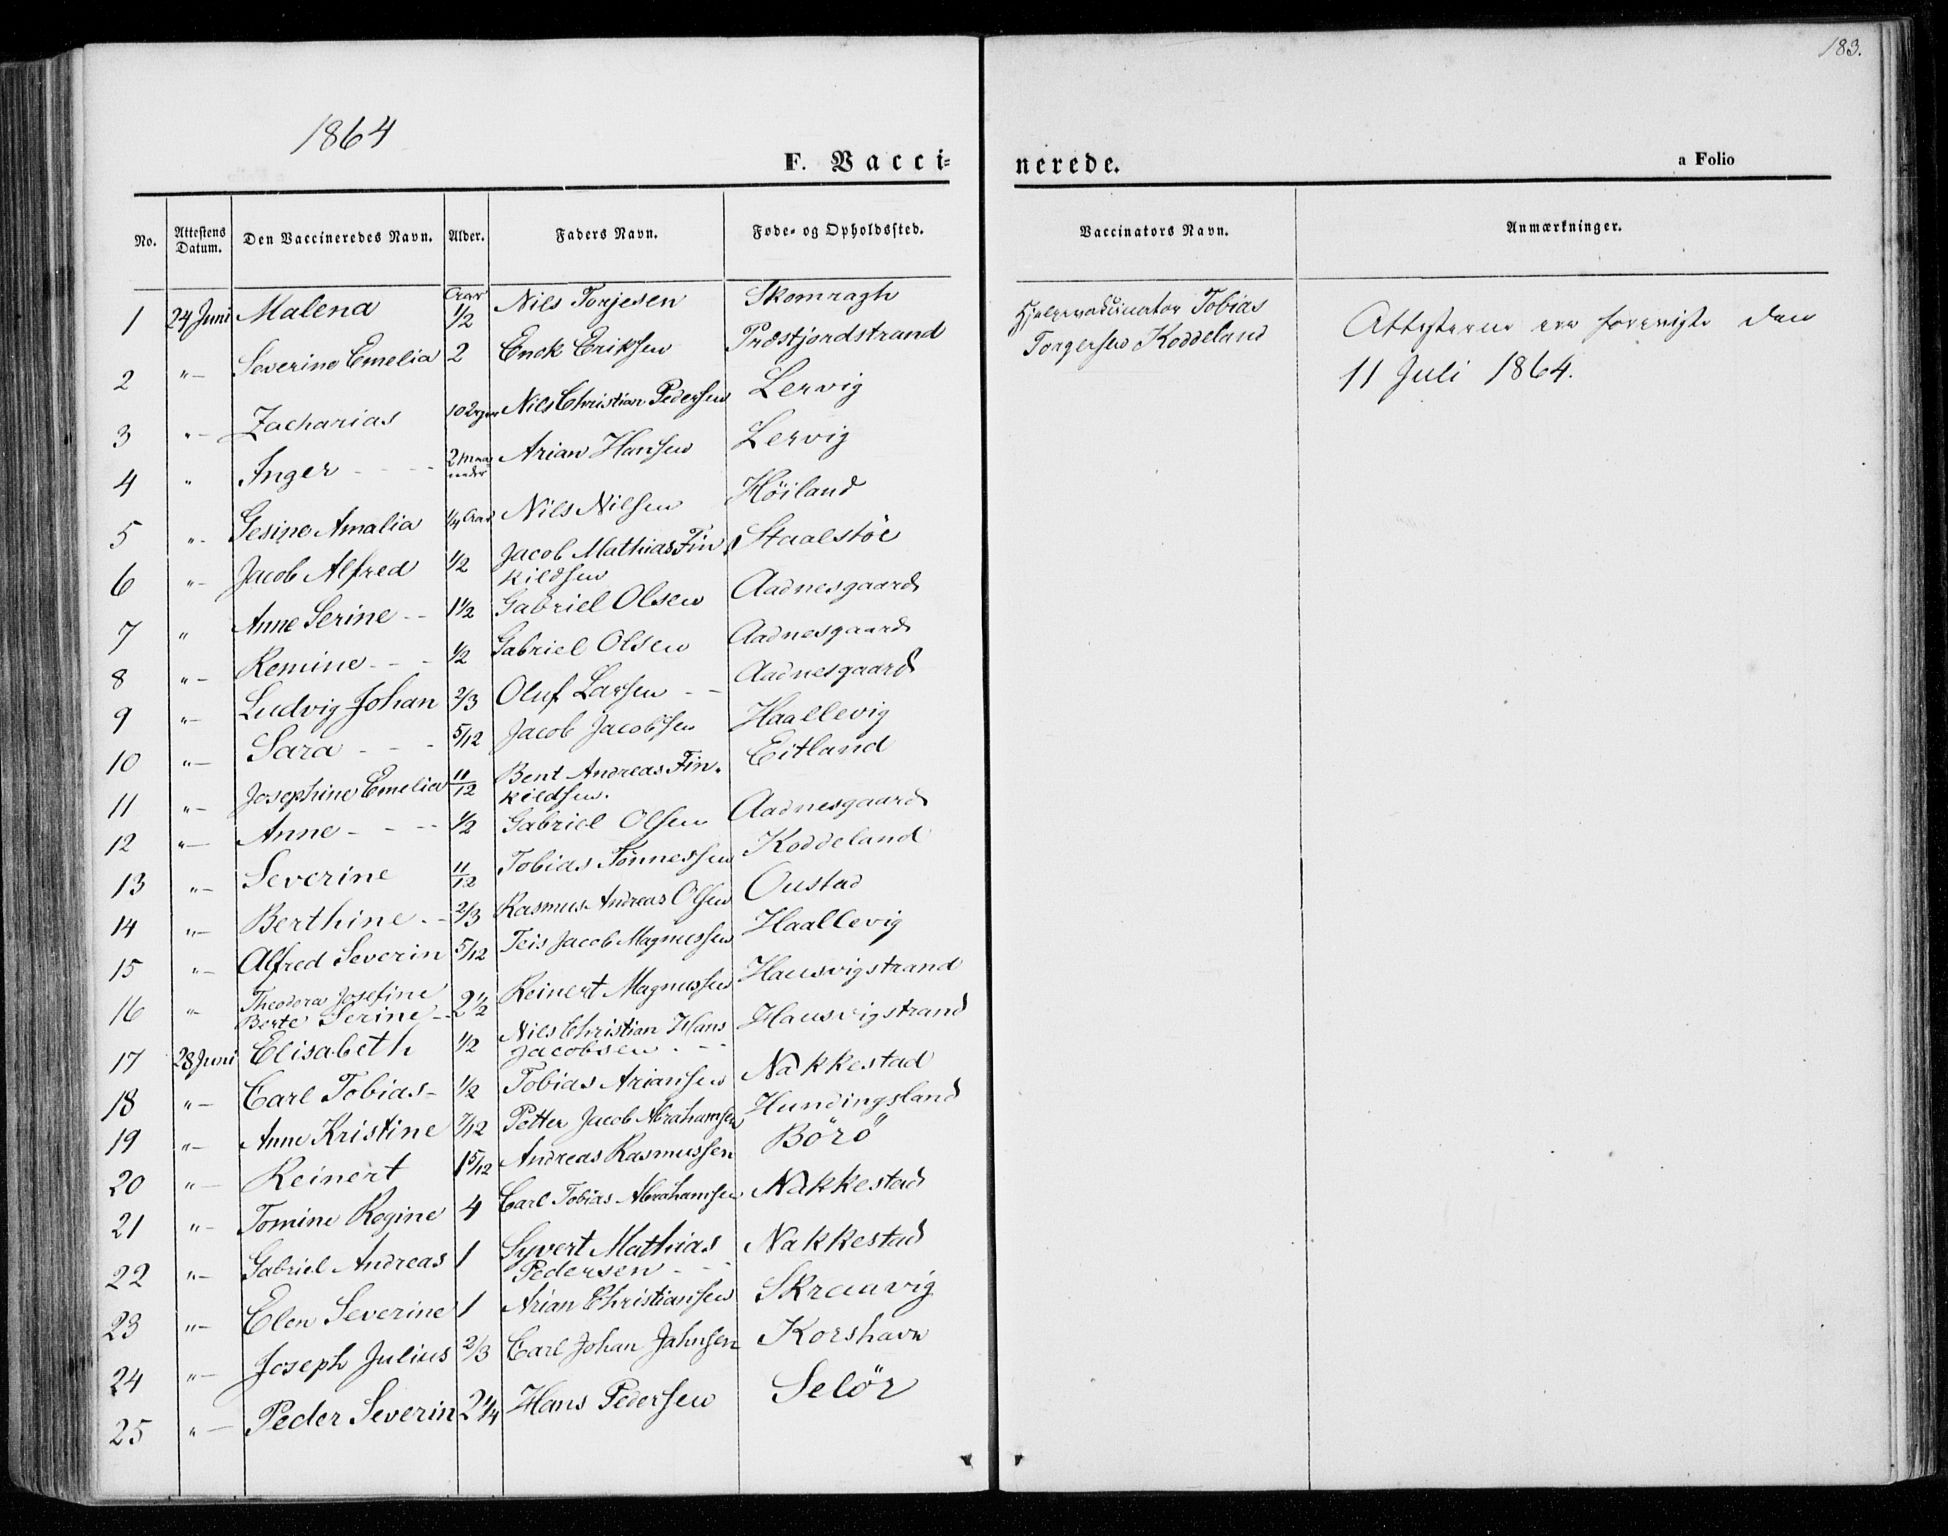 183.
1864
F. Vacci-
nerede.
a Folio
No. Attestens Datum. Den Vaccineredes Navn. Alder. Faders Navn. Føde- og Opholdssted. Vaccinators Navn. Anmærkninger.
1 24 Juni Malena Aar 1/2 Nils Torjesen Skomragh Hjelpevaccinator Tobias
Torgersen Koddeland
Attesterne ere forevigte den
11 Juli 1864.
2 "- Severine Emelia 2 Enok Eriksen Præstjordstrand
3 "- Zacharias 10 Uger Nils Christian Pedersen Lervig
4 " Inger - - - - 2 Maaneder Arian Hansen Lervig
5 "- Gesine Amalia 1/4 Aar Nils Nilsen Höiland
6 "- Jacob Alfred 1/2 Jacob Mathias Fin-
kildsen Staalstöe
7 " Anne Serine - - 1 1/2 Gabriel Olsen Aadnesgaard
8 "- Remine - - - 1/2 Gabriel Olsen Aadnesgaard
9 "- Ludvig Johan 2/3 Oluf Larsen - - Aadnesgaard
10 "- Sara - - - 5/12 Jacob Jacobsen Haallevig
11 "- Josephine Emelia 11/12 Bent Andreas Fin-
kildsen. Eitland
12 "- Anne - - - - 1/2 Gabriel Olsen Aadnesgaard
13 "- Severine 11/12 Tobias Tønnessen Koddeland
14 "- Berthine - - 2/3 Rasmus Andreas Olsen Oustad
15 "- Alfred Severin 5/12 Teis Jacob Magnussen Haallevig
16 "- Theodora Josefine
Berte Serine - - 2 1/2 Reinert Magnussen Hausvigstrand
17 28 Juni Elisabeth 1/2 Nils Christian Hans
Jacobsen - - - Hausvigstrand
18 "- Carl Tobias - 1/2 Tobias Ariansen Nakkestad
19 "- Anne Kristine 7/12 Petter Jacob Abrahamsen Hundingsland
20 "- Reinert 1 5/12 Andreas Rasmussen Börö
21 "- Tomine Regine 4 Carl Tobias Abrahamsen Nakkestad
22 "- Gabriel Andreas 1 Syvert Mathias
Pedersen - - - Nakkestad
23 "- Elen Severine 1 Arian Christiansen Skraavig
24 "- Joseph Julius 2/3 Carl Johan Jahnsen Korshavn
25 "- Peder Severin 2 1/4 Hans Pedersen Selör